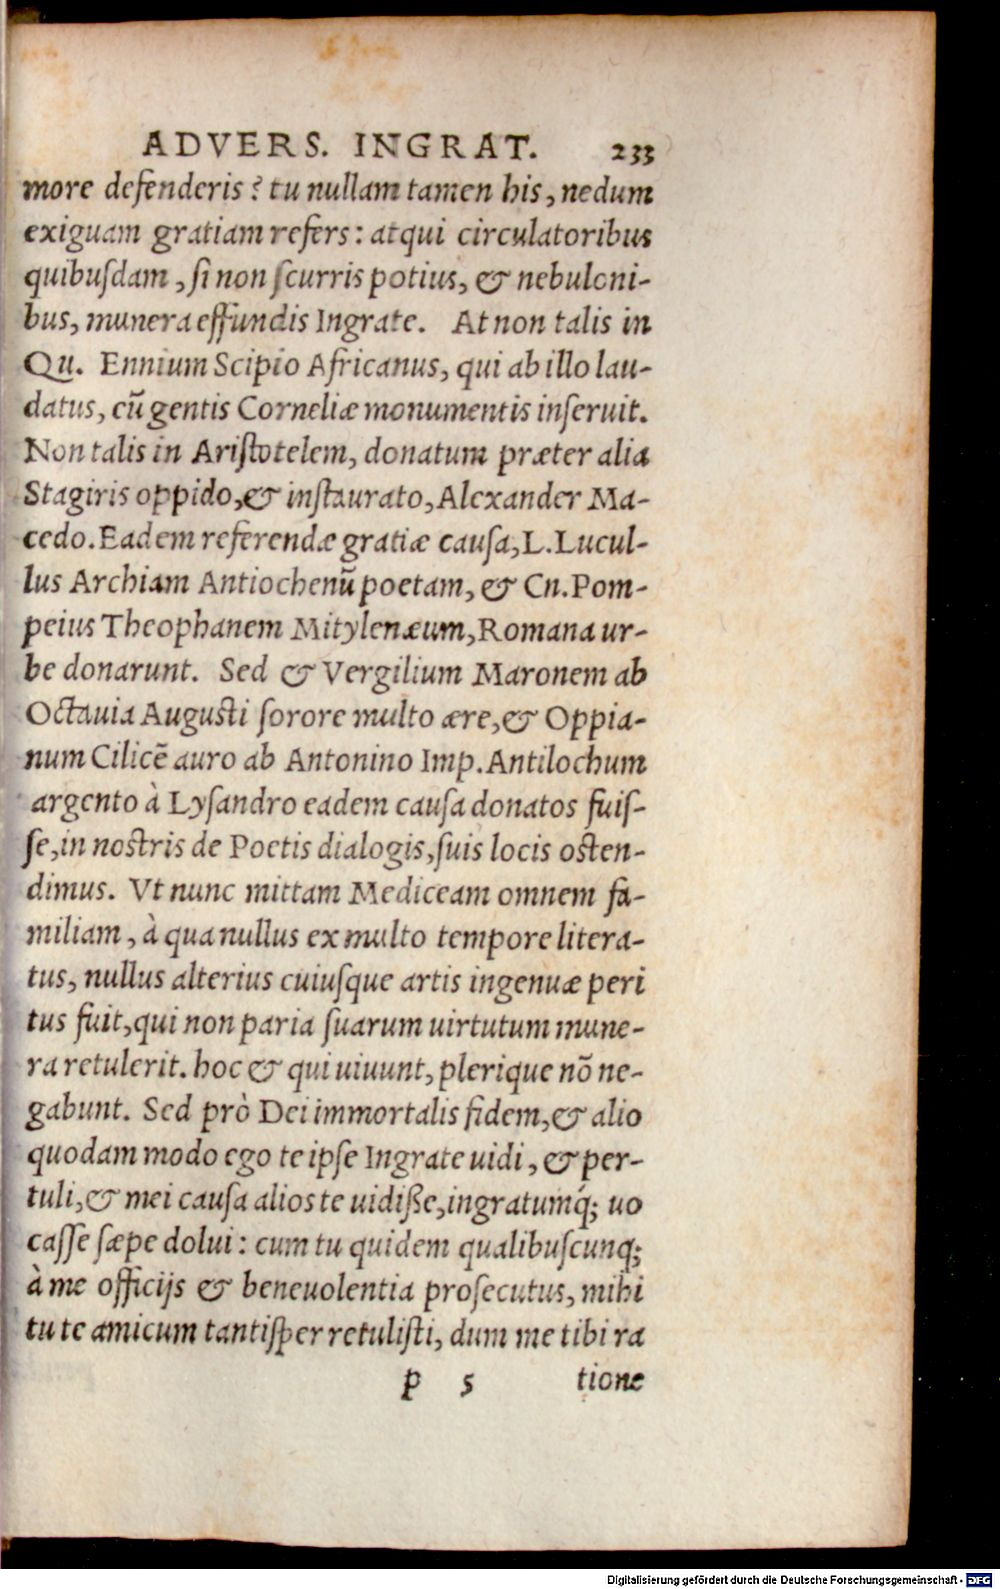 ADVERS. INGRAT. 233
more defenderis? tu nullam tamen his, nedum
exiguam gratiam refers: atqui circulatoribus
quibuſdam, ſi non ſcurris potius, & nebuloni-
bus, munera effundis Ingrate. At non talis in
Qu. Ennium Scipio Africanus, qui ab illo lau-
datus, cū gentis Corneliæ monumentis inſeruit.
Non talis in Ariſtotelem, donatum præter alia
Stagiris oppido, & inſtaurato, Alexander Ma-
cedo. Eadem referendæ gratiæ cauſa, L. Lucul-
lus Archiam Antiochenū poetam, & Cn. Pom-
peius Theophanem Mitylenæum, Romana ur-
be donarunt. Sed & Vergilium Maronem ab
Octauia Auguſti ſorore multo ære, & Oppia-
num Cilicē auro ab Antonino Imp. Antilochum
argento à Lyſandro eadem cauſa donatos fuiſ-
ſe, in noſtris de Poetis dialogis, ſuis locis oſten-
dimus. Vt nunc mittam Mediceam omnem fa-
miliam, à qua nullus ex multo tempore litera-
tus, nullus alterius cuiuſque artis ingenuæ peri
tus fuit, qui non paria ſuarum uirtutum mune-
ra retulerit. hoc & qui uiuunt, plerique nō ne-
gabunt. Sed prò Dei immortalis fidem, & alio
quodam modo ego te ipſe Ingrate uidi, & per-
tuli, & mei cauſa alios te uidiße, ingratumq́; uo
caſſe ſæpe dolui: cum tu quidem qualibuſcunq;
à me officijs & beneuolentia proſecutus, mihi
tu te amicum tantiſper retuliſti, dum me tibi ra
p 5 tione
Digitalisierung gefördert durch die Deutsche Forschungsgemeinschaft - DFG